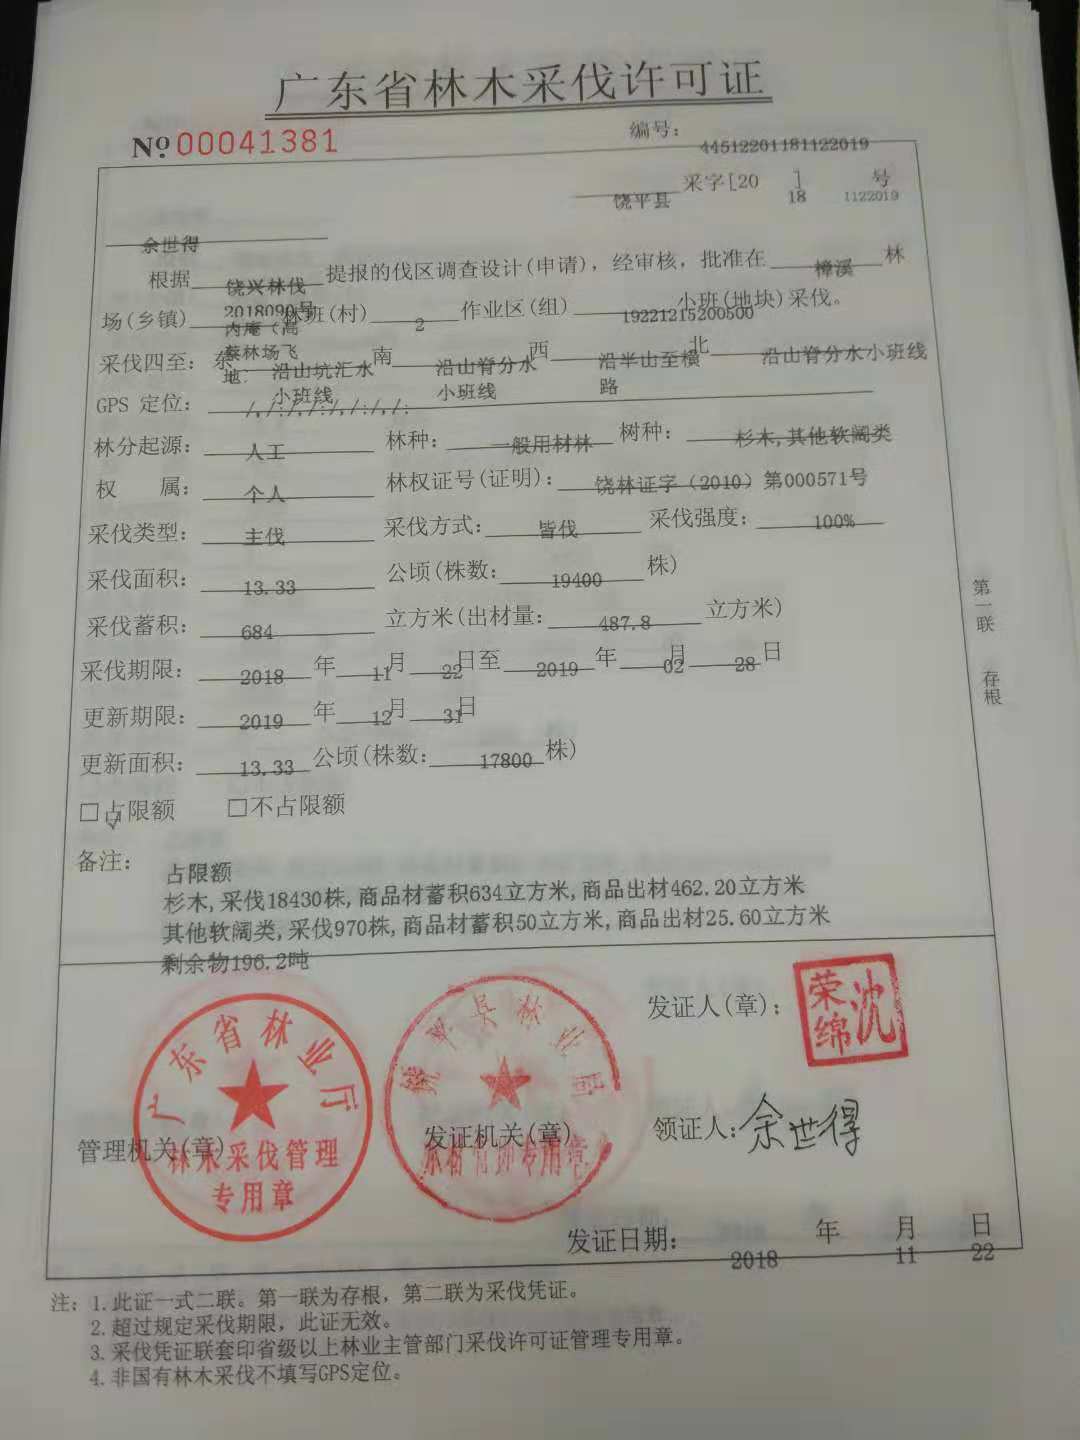 广东省林木采伐许可证
№ 00041381 编号: 44512201181122019
饶平县 采字[20 18 ] 1122019 号
余世得
根据 饶兴林伐2018090号 提报的伐区调查设计(申请), 经审核, 批准在 樟溪 林
场(乡镇) 内庵(高蔡林场飞地: 林班(村) 2 作业区(组) 19221215200500 小班(地块)采伐。
采伐四至: 东 沿山坑汇水小班线 南 沿山脊分水小班线 西 沿半山至横路 北 沿山脊分水小班线
GPS 定位: /,/:/,/:/,/:/,/:
林分起源: 人工 林种: 一般用材林 树种: 杉木,其他软阔类
权 属: 个人 林权证号(证明): 饶林证字（2010）第000571号
采伐类型: 主伐 采伐方式: 皆伐 采伐强度: 100%
采伐面积: 13.33 公顷(株数: 19400 株)
采伐蓄积: 684 立方米(出材量: 487.8 立方米)
采伐期限: 2018 年 11 月 22 日至 2019 年 02 月 28 日
更新期限: 2019 年 12 月 31 日
更新面积: 13.33 公顷(株数: 17800 株)
□占限额 √ □不占限额
备注: 占限额
杉木,采伐18430株,商品材蓄积634立方米,商品出材462.20立方米
其他软阔类,采伐970株,商品材蓄积50立方米,商品出材25.60立方米
剩余物196.2吨
第一联 存根
广东省林业厅
林木采伐管理
专用章
管理机关(章)
饶平县林业局
专用章
发证机关(章)
发证人(章):
沈荣绵
领证人: 余世得
发证日期: 2018 年 11 月 22 日
注: 1.此证一式二联。第一联为存根, 第二联为采伐凭证。
2.超过规定采伐期限, 此证无效。
3.采伐凭证联套印省级以上林业主管部门采伐许可证管理专用章。
4.非国有林木采伐不填写GPS定位。